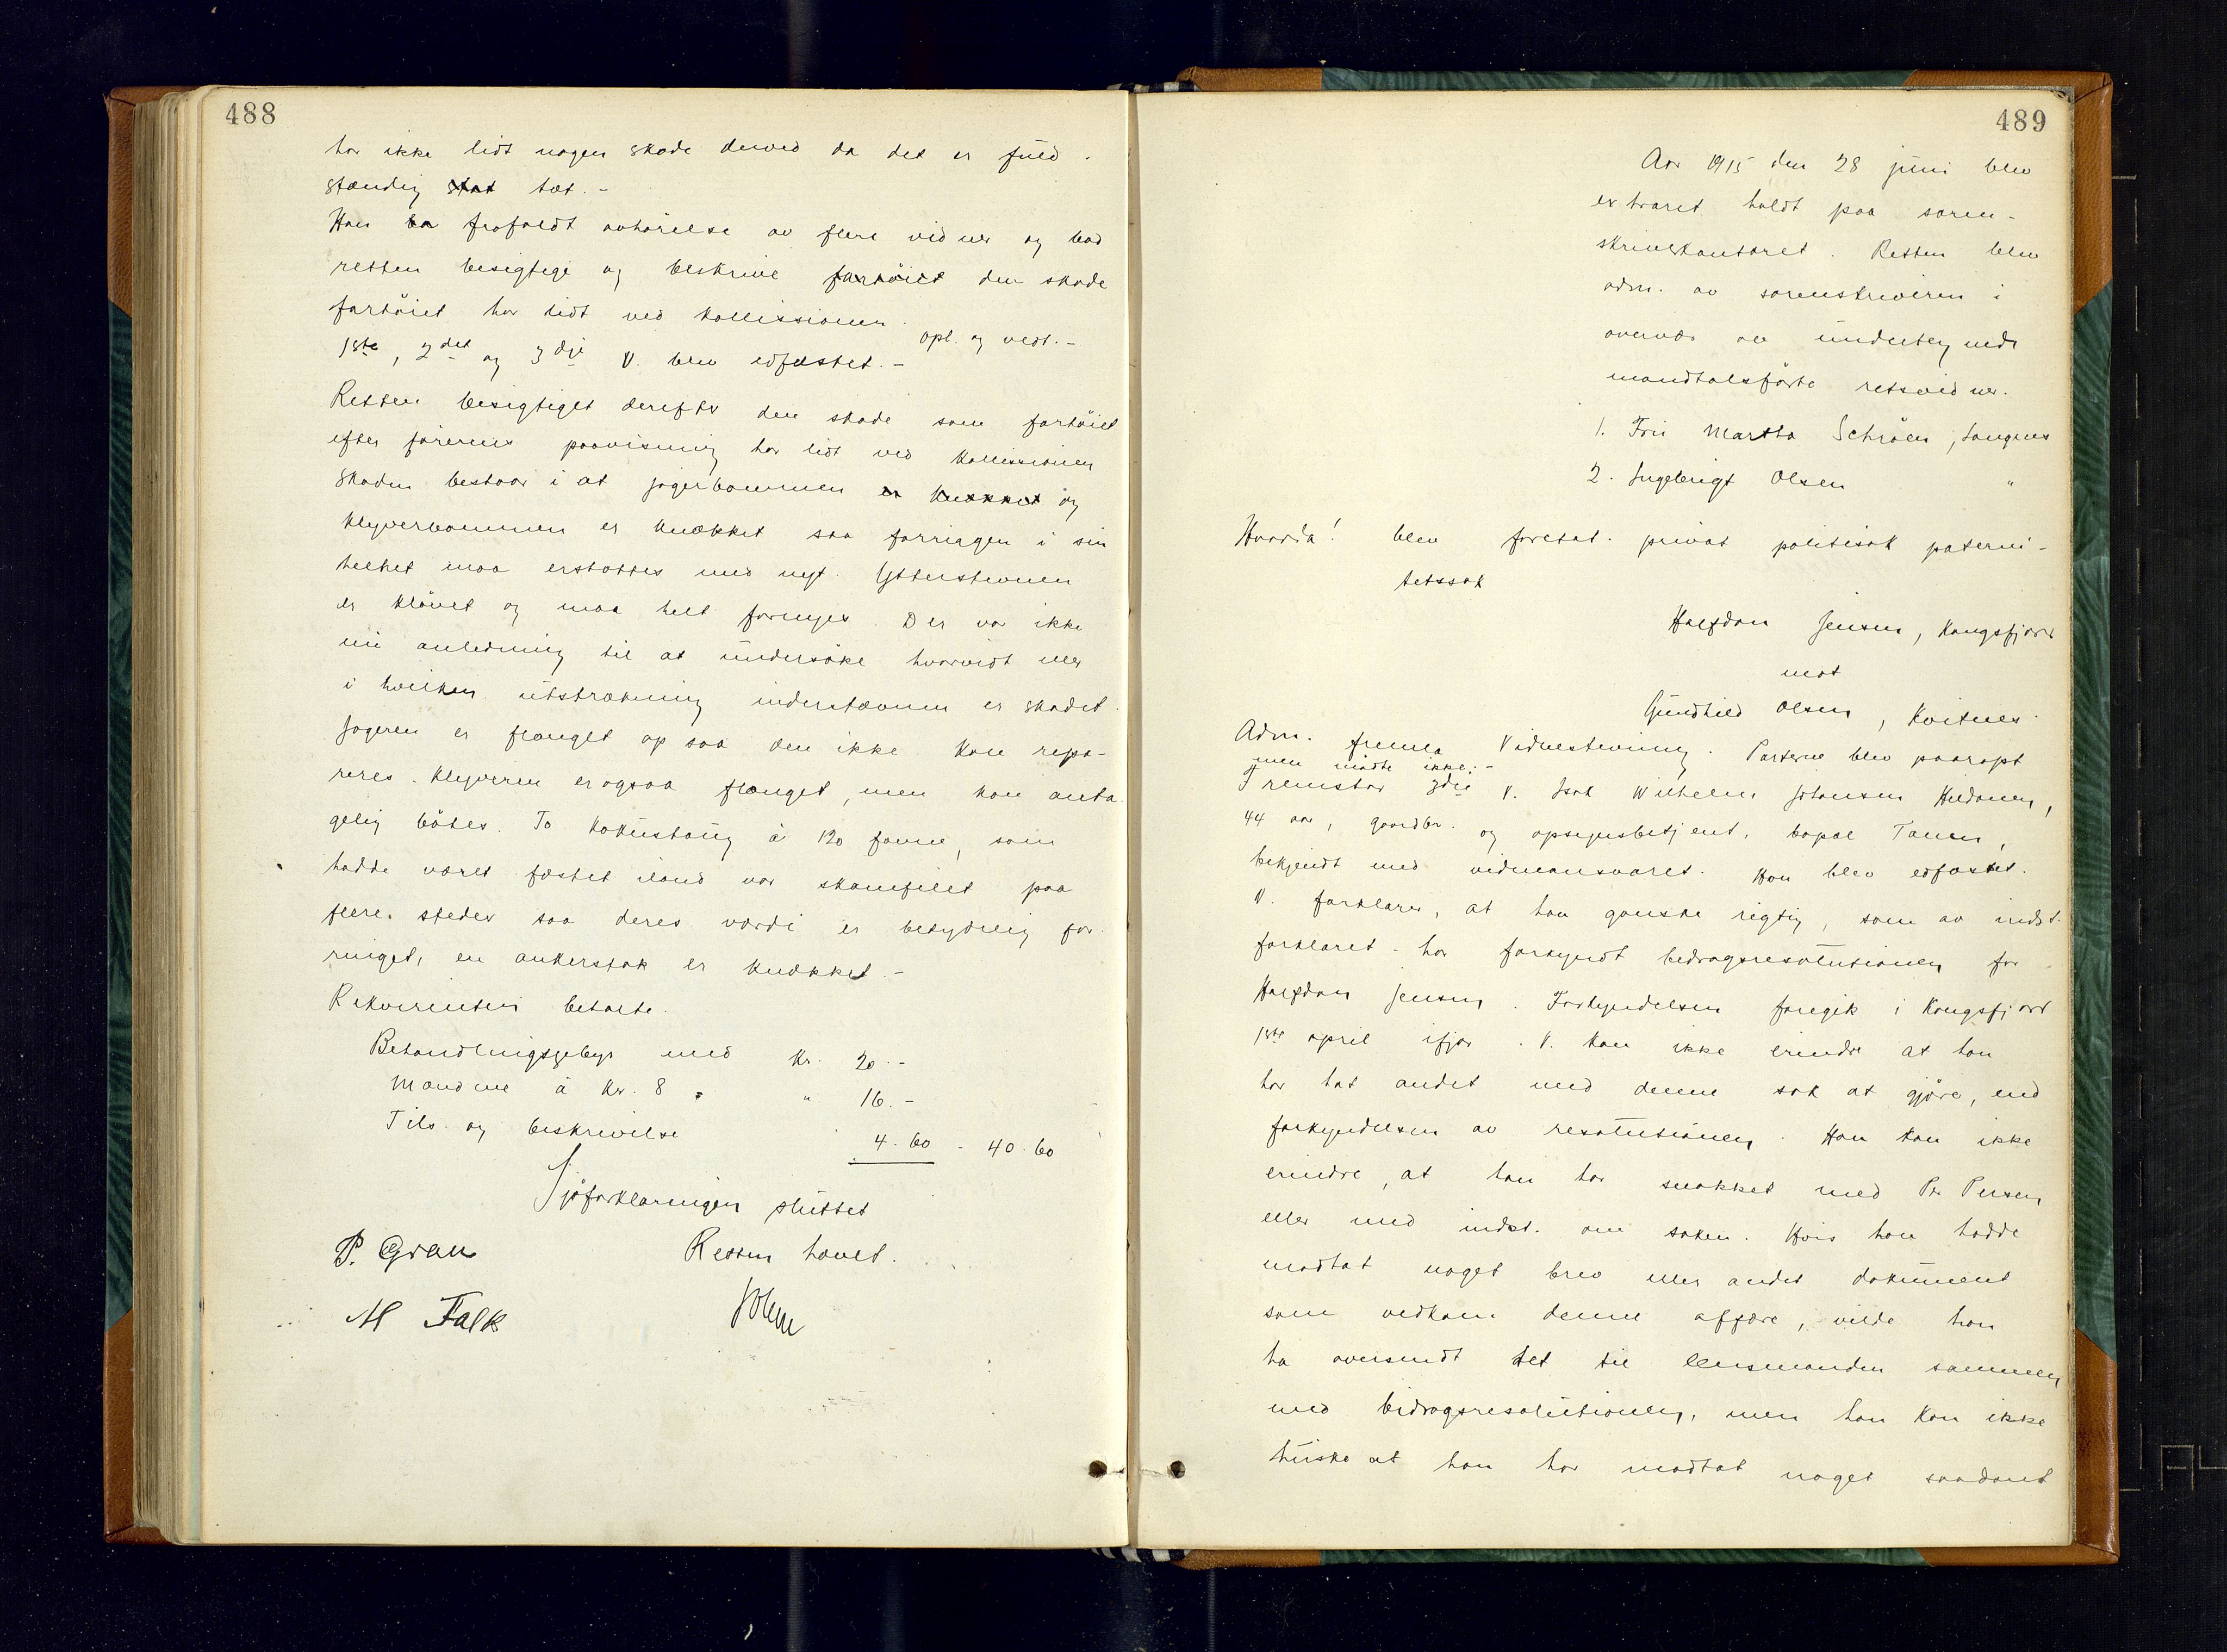 488
har ikke lidt nogen skade derved da det er fuld-
stændig stat tæt.-
Han ba frafaldt avhørelse av flere vidner og bad
retten besigtige og beskrive fartöiet den skade
fartöiet har lidt ved kollissionen. opl. og vedt.-
1ste, 2det og 3dje V. blev edfæstet.-
Retten besigtiget derefter den skade som fartöiet
efter förerens paavisning har lidt ved kollissionen
Skaden bestaar i at jagerbommen er knækket og
klyverbommen er knækket saa forriggen i sin
helhet maa erstattes med nyt. Ytterstevnen
er klövet og maa helt fornyes. Der var ikke
nu anledning til at undersöke hvorvidt eller
i hvilken utstrækning inderstævnen er skadet.
Jageren er flænget op saa den ikke kan repa-
reres. Klyveren er ogsaa flænget, men kan anta-
gelig bötes. To kokustaug á 120 favne, som
hadde været fæstet iland var skamfilet paa
flere steder saa deres værdi er betydelig for-
ringet, en ankerstok er knækket.-
Rekvirenten betalte.
Behandlingsgebyr med Kr. 20.-
Mændene á kr. 8 " 16.-
Tils. og beskrivelse 4.60 - 40.60
Sjöforklaringen sluttet
P. Gran Retten hævet.
M Falk
489
Aar 1915 den 28 juni blev
extraret holdt paa soren-
skriverkontoret. Retten blev
adm. av sorenskriveren i
overvær av undertegnede
mandtalsförte retsvidner.
1. Fru Martha Schröen, Langnes
2. Ingebrigt Olsen "
Hvorda! blev foretat privat politisak paterni-
tetssak
Halfdan Jensen, Kongsfjord
mot
Gundhild Olsen, Kvitnes.
Adm. fremla Vidnestevning. Parterne blev paaropt
men mödte ikke.-
Fremstod 3dje V. Isak Wilhelm Johansen Hildonen,
44 aar, gaardbr. og opsynsbetjent, bopæl Tanen,
bekjendt med vidneansvaret. Han blev edfæstet.
V. forklarer, at han ganske rigtig, som av indst.
forklaret - har forkyndt bidragsresolutionen for
Halfdan Jensen. Forkyndelsen foregik i Kongsfjord
1ste april ifjor. V. kan ikke erindre at han
har hat andet med denne sak at gjöre, end
forkyndelsen av resolutionen. Han kan ikke
erindre, at han har snakket med Per Persen
eller med indst. om saken. Hvis han hadde
modtat noget brev eller andet dokument
som vedkom denne affære, vilde han
ha oversendt det til lensmanden sammen
med bidragsresolutionen, men han kan ikke
huske at han har modtat noget saadant